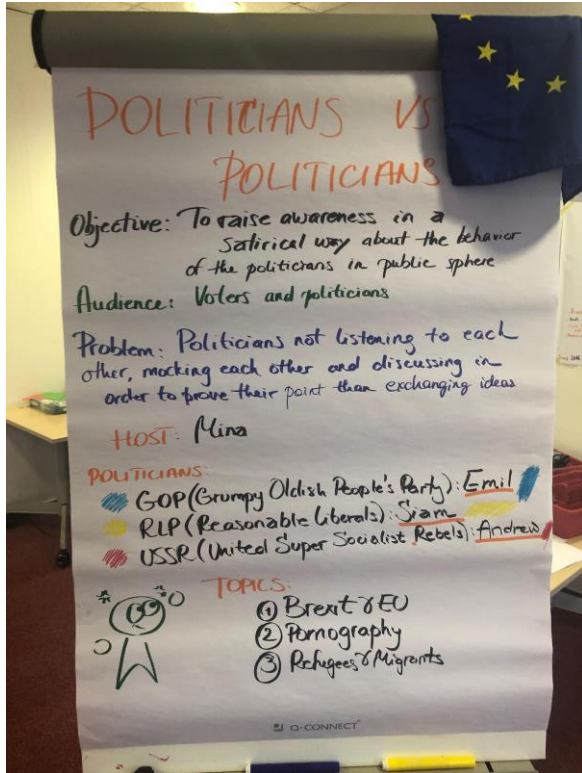 POLITICIANS VS
POLITICIANS
Objective: To raise awareness in a
satirical way about the behavior
of the politicians in public sphere
Audience: Voters and politicians
Problem: Politicians not listening to each
other, mocking each other and discussing in
order to prove their point than exchanging ideas
HOST: Mina
POLITICIANS:
GOP (Grumpy Oldish People's Party): Emil
RLP (Reasonable Liberals): Siam
USSR (United Super Socialist Rebels): Andrew
TOPICS:
① Brexit & EU
② Pornography
③ Refugees & Migrants
Q-CONNECT